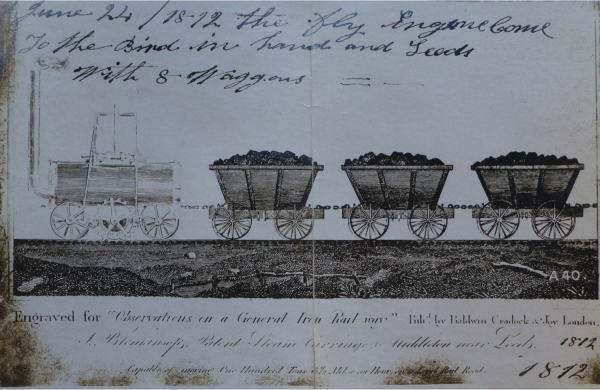 June 24 / 1812 the fly Engine Come
To the Bird in hand and Leeds
With 8 Waggons
A40.
Engraved for "Observations on a General Iron Rail way" Pub.d by Baldwin Cradock & Joy London.
J. Blenkinsop's Patent Steam Carriage at Middleton near Leeds, 1812
Capable of moving One Hundred Tons Miles an Hour, on a Level Rail Road.
1812